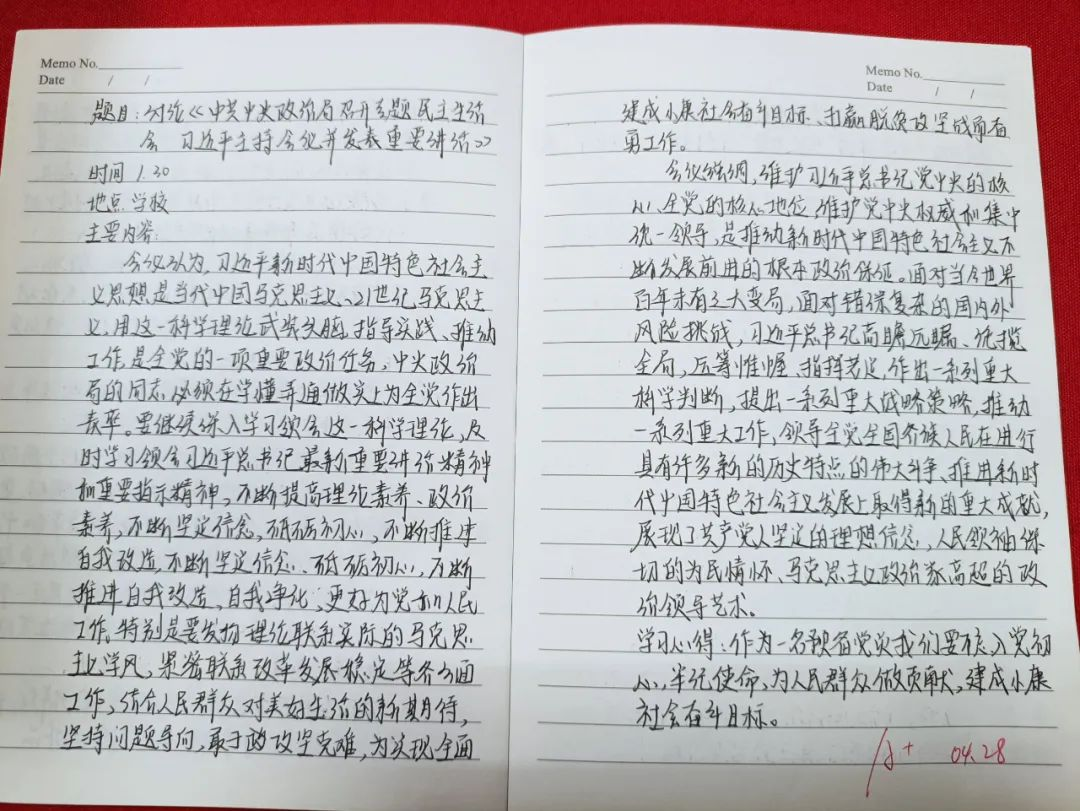 Memo No.
Date / /
题目:讨论《中共中央政治局召开专题民主生活
会 习近平主持会议并发表重要讲话》
时间 1.30
地点 学校
主要内容:
会议认为,习近平新时代中国特色社会主
义思想是当代中国马克思主义、21世纪马克思主
义,用这一科学理论武装头脑、指导实践、推动
工作,是全党的一项重要政治任务,中央政治
局的同志必须在学懂弄通做实上为全党作出
表率。要继续深入学习领会这一科学理论,及
时学习领会习近平总书记最新重要讲话精神
和重要指示精神,不断提高理论素养、政治
素养,不断坚定信念,砥砺初心,不断推进
自我改造,不断坚定信念、砥砺初心,不断
推进自我改造、自我净化,更好为党和人民
工作,特别是要发扬理论联系实际的马克思
主义学风,紧密联系改革发展稳定等各方面
工作,结合人民群众对美好生活的新期待,
坚持问题导向,敢于啃攻坚克难,为实现全面
Memo No.
Date / /
建成小康社会奋斗目标、打赢脱贫攻坚战而奋
勇工作。
会议强调,维护习近平总书记党中央的核
心、全党的核心地位,维护党中央权威和集中
统一领导,是推动新时代中国特色社会主义不
断发展前进的根本政治保证。面对当今世界
百年未有之大变局,面对错综复杂的国内外
风险挑战,习近平总书记高瞻远瞩、统揽
全局,运筹帷幄、指挥若定,作出一系列重大
科学判断,提出一系列重大战略策略,推动
一系列重大工作,领导全党全国各族人民在进行
具有许多新的历史特点的伟大斗争、推进新时
代中国特色社会主义发展上取得新的重大成就,
展现了共产党人坚定的理想信念,人民领袖深
切的为民情怀、马克思主义政治家高超的政
治领导艺术。
学习心得:作为一名预备党员我们要深入党初
心,牢记使命,为人民群众做贡献,建成小康
社会奋斗目标。
A+ 04.28